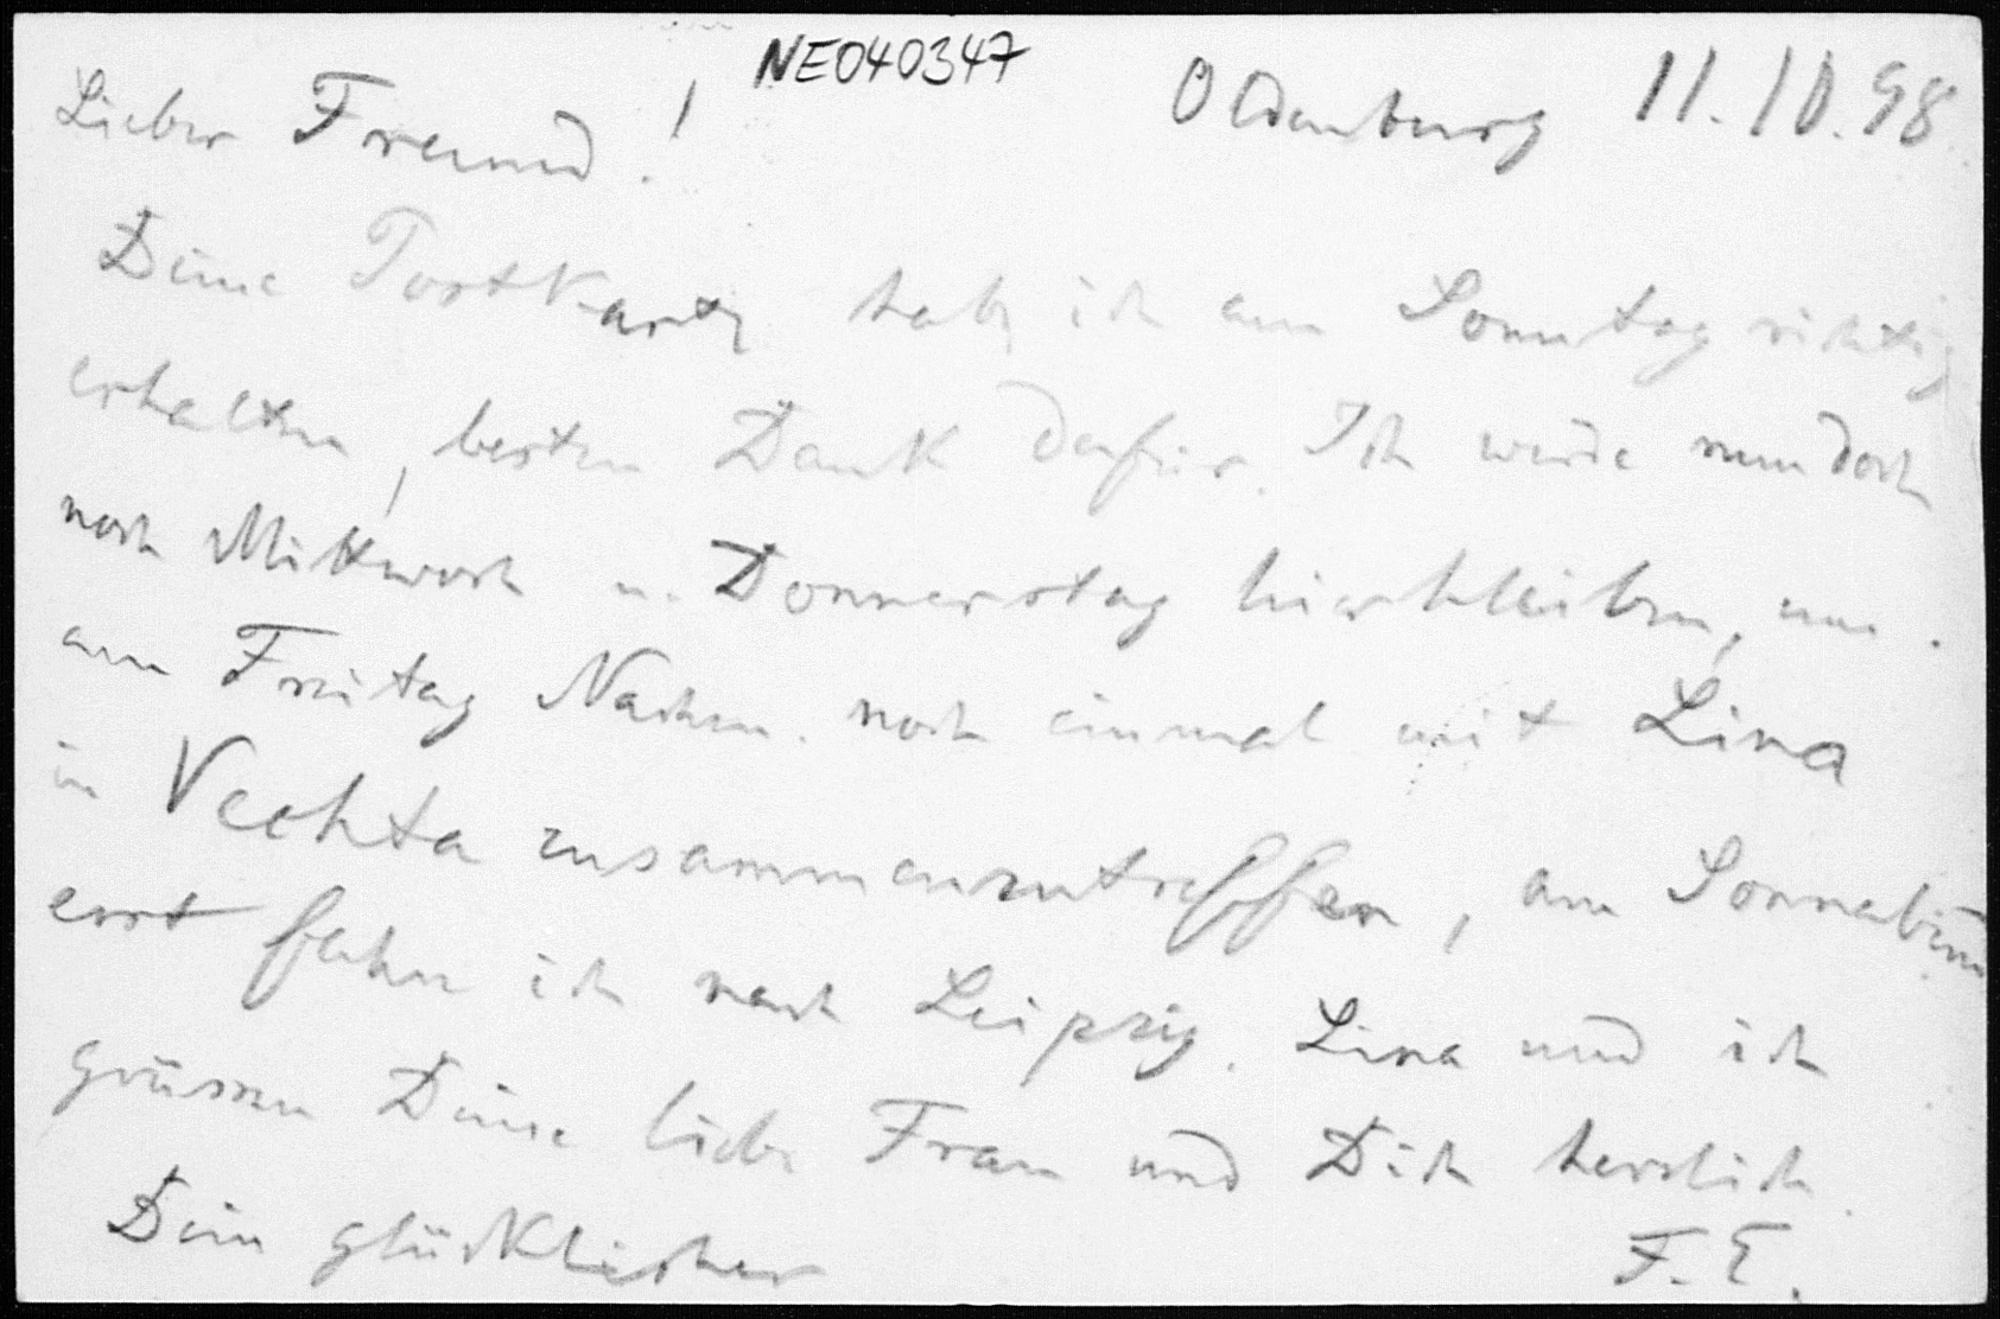 NE040347
Oldenburg 11.10.98
Lieber Freund!
Deine Postkarte habe ich am Sonntag richtig
erhalten, besten Dank dafür. Ich werde nun doch
noch Mittwoch u. Donnerstag hierbleiben, um
am Freitag Nachm. noch einmal mit Lina
in Vechta zusammenzutreffen, am Sonnabend
erst fahre ich nach Leipzig. Lina und ich
grüssen Deine liebe Frau und Dich herzlich.
Dein glücklicher F. E.